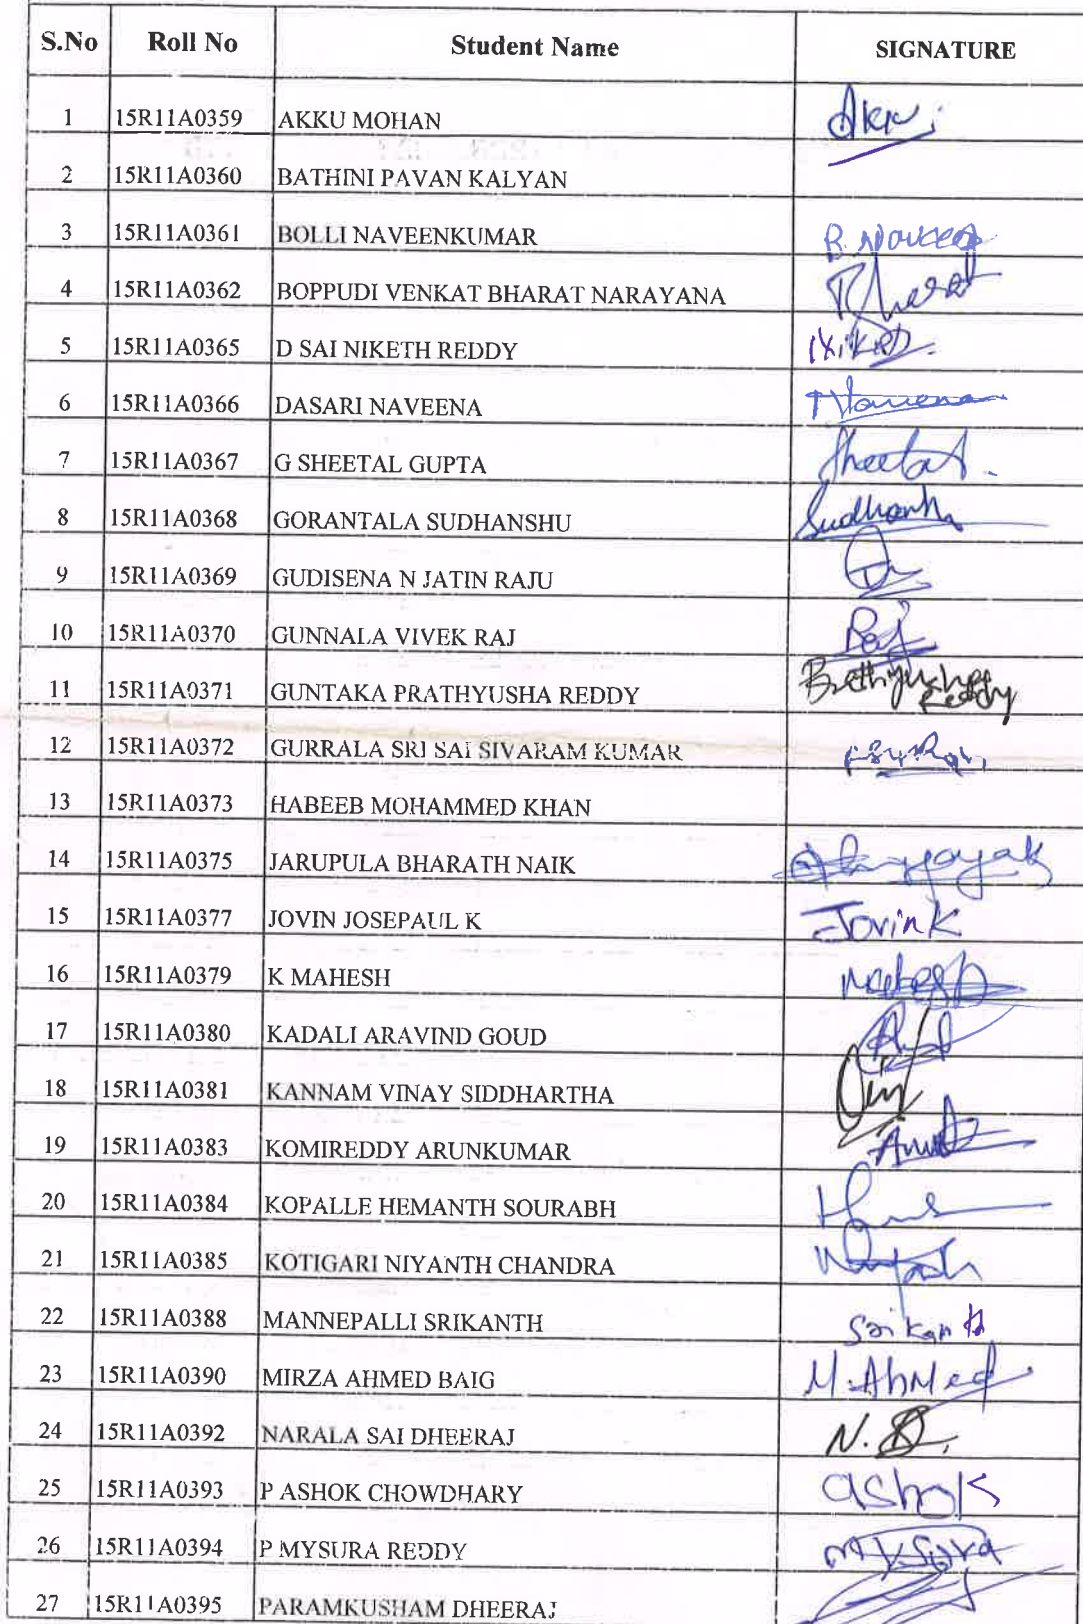 S.No Roll No Student Name SIGNATURE
1 15R11A0359 AKKU MOHAN Akku
2 15R11A0360 BATHINI PAVAN KALYAN
3 15R11A0361 BOLLI NAVEENKUMAR B. Naveen
4 15R11A0362 BOPPUDI VENKAT BHARAT NARAYANA Bharat
5 15R11A0365 D SAI NIKETH REDDY
6 15R11A0366 DASARI NAVEENA Naveena
7 15R11A0367 G SHEETAL GUPTA Sheetal
8 15R11A0368 GORANTALA SUDHANSHU Sudhanshu
9 15R11A0369 GUDISENA N JATIN RAJU
10 15R11A0370 GUNNALA VIVEK RAJ Raj
11 15R11A0371 GUNTAKA PRATHYUSHA REDDY Prathyusha Reddy
12 15R11A0372 GURRALA SRI SAI SIVARAM KUMAR
13 15R11A0373 HABEEB MOHAMMED KHAN
14 15R11A0375 JARUPULA BHARATH NAIK
15 15R11A0377 JOVIN JOSEPAUL K Jovin K
16 15R11A0379 K MAHESH Mahesh
17 15R11A0380 KADALI ARAVIND GOUD
18 15R11A0381 KANNAM VINAY SIDDHARTHA
19 15R11A0383 KOMIREDDY ARUNKUMAR
20 15R11A0384 KOPALLE HEMANTH SOURABH
21 15R11A0385 KOTIGARI NIYANTH CHANDRA
22 15R11A0388 MANNEPALLI SRIKANTH Srikanth
23 15R11A0390 MIRZA AHMED BAIG M.AhMed
24 15R11A0392 NARALA SAI DHEERAJ
25 15R11A0393 P ASHOK CHOWDHARY ashok
26 15R11A0394 P MYSURA REDDY Mysura
27 15R11A0395 PARAMKUSHAM DHEERAJ